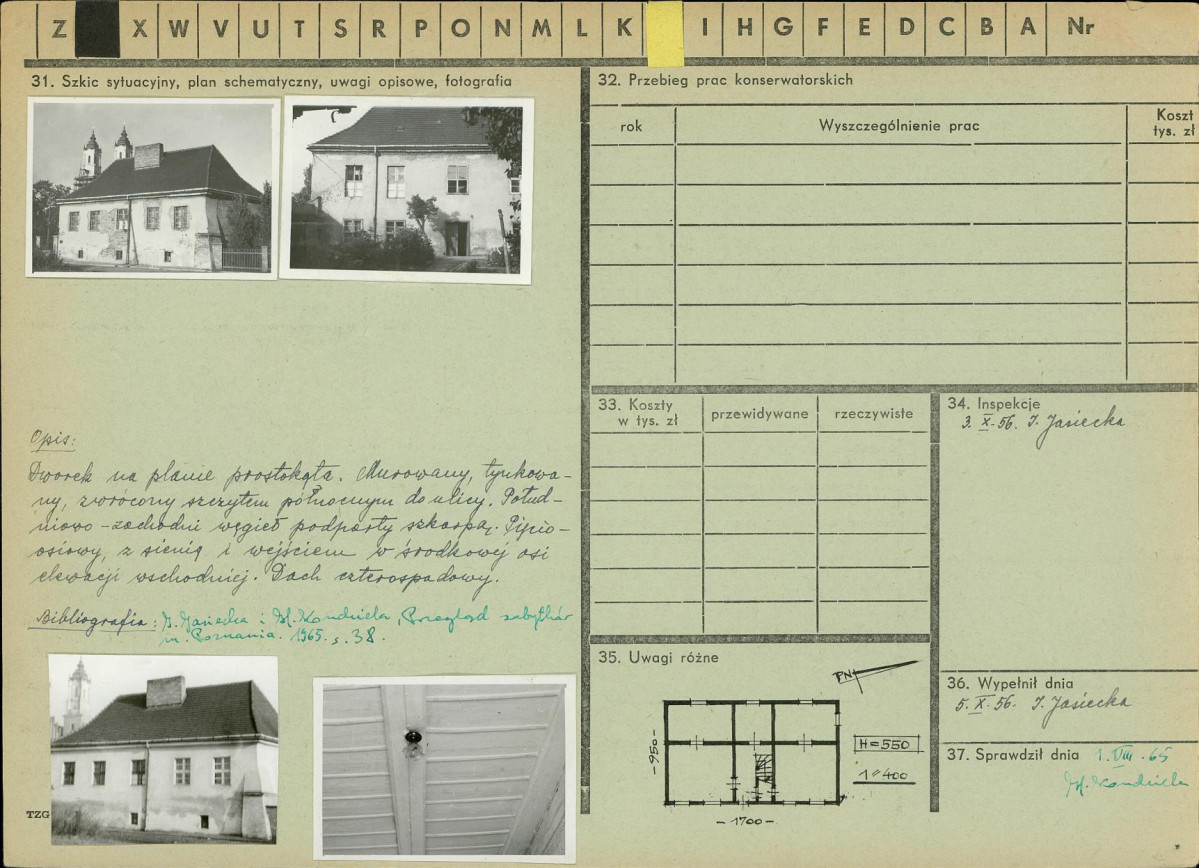 Z X W V U T S R P O N M L K I H G F E D C B A Nr
31. Szkic sytuacyjny, plan schematyczny, uwagi opisowe, fotografia
Opis:
Dworek na planie prostokąta. Murowany, tynkowa-
ny, zwrócony szczytem północnym do ulicy. Połud-
niowo-zachodni węgieł podparty szkarpą. Pięcio-
osiowy, z sienią i wejściem w środkowej osi
elewacji wschodniej. Dach czterospadowy.
Bibliografia: I. Jasiecka i H. Kondziela, Przegląd zabytków
m. Poznania. 1965. s. 38.
TZG
32. Przebieg prac konserwatorskich
rok
Wyszczególnienie prac
Koszt
tys. zł
33. Koszty
w tys. zł
przewidywane
rzeczywiste
34. Inspekcje
3. X. 56. I. Jasiecka
35. Uwagi różne
PN
-950-
H=550
1:400
-1700-
36. Wypełnił dnia
5. X. 56. I. Jasiecka
37. Sprawdził dnia 1. VIII. 65
H. Kondziela